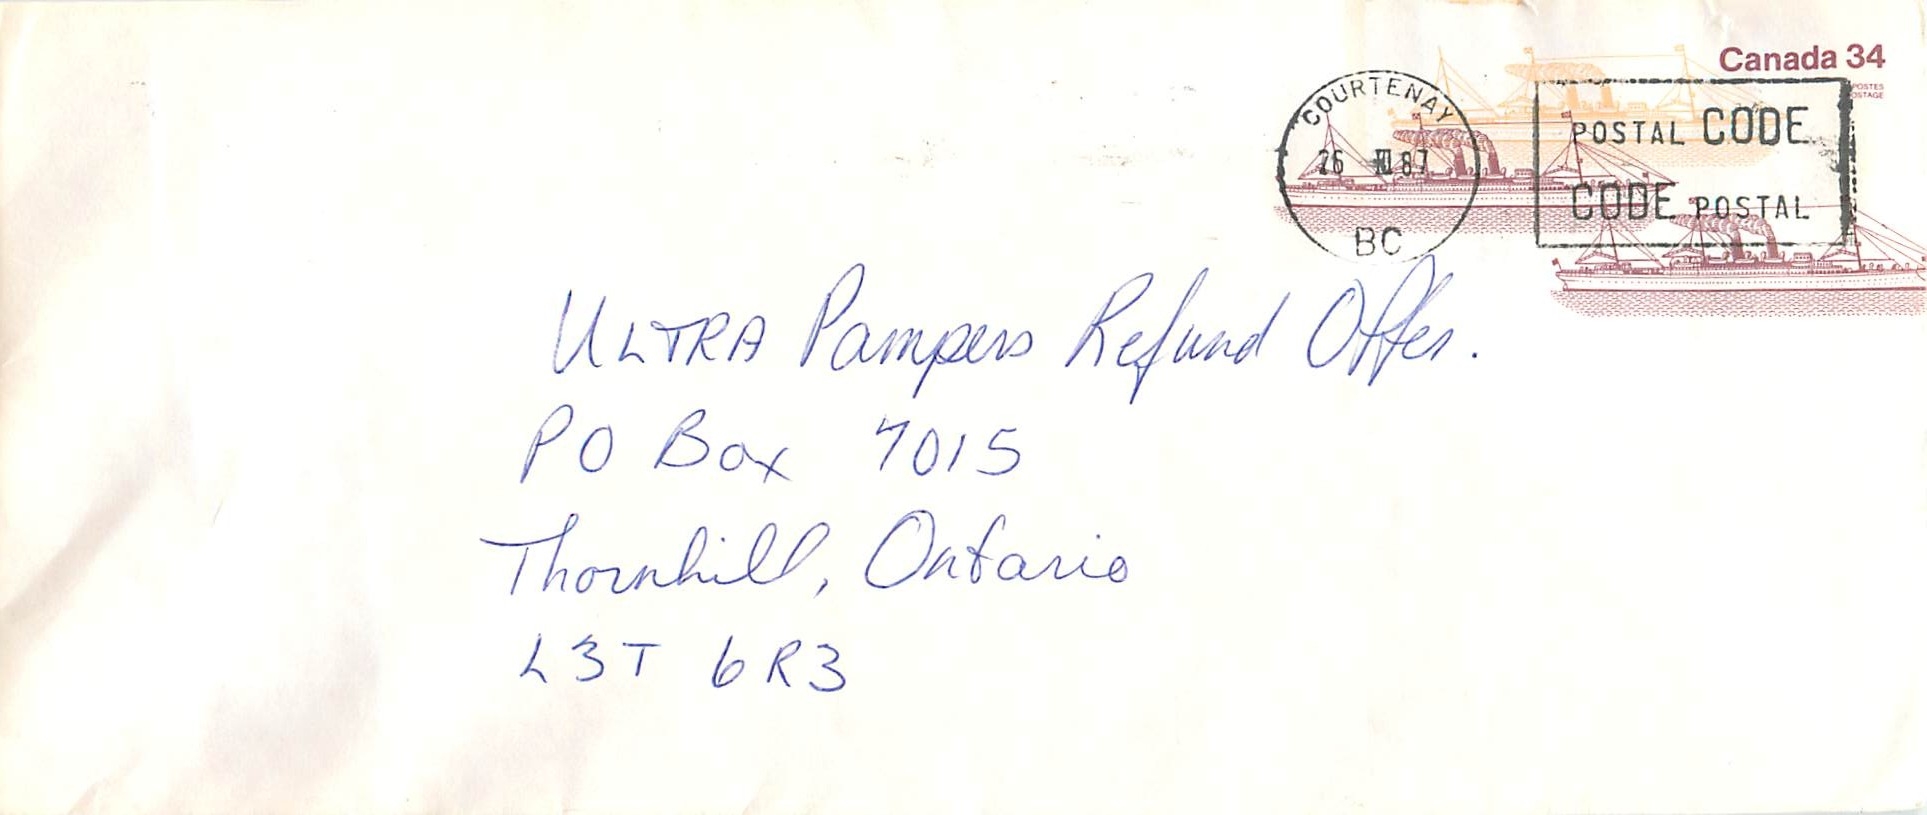 Canada 34
POSTES
POSTAGE
COURTENAY
26 87
BC
POSTAL CODE
CODE POSTAL
ULTRA Pampers Refund Offer.
PO Box 7015
Thornhill, Ontario
L3T 6R3